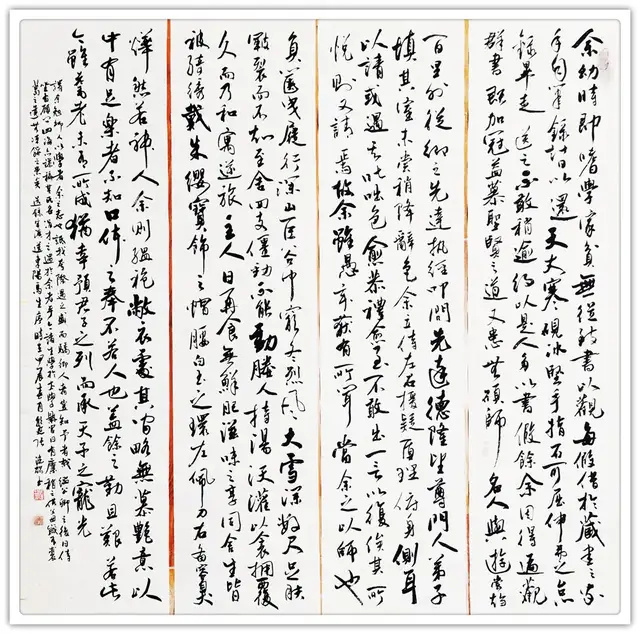 余幼時即嗜學家貧無從致書以觀每假借於藏書之家
手自筆錄計日以還天大寒硯冰堅手指不可屈伸弗之怠
錄畢走送之不敢稍逾約以是人多以書假餘余因得遍觀
群書既加冠益慕聖賢之道又患無碩師名人與遊嘗趨
百里外從鄉之先達執經叩問先達德隆望尊門人弟子
填其室未嘗稍降辭色余立侍左右援疑質理俯身側耳
以請或遇其叱咄色愈恭禮愈至不敢出一言以復俟其
悅則又請焉故余雖愚卒獲有所聞當余之從師也
負篋曳屣行深山巨谷中窮冬烈風大雪深數尺足膚
皸裂而不知至舍四支僵勁不能動媵人持湯沃灌以衾擁覆
久而乃和寓逆旅主人日再食無鮮肥滋味之享同舍生皆
被綺繡戴朱纓寶飾之帽腰白玉之環左佩刀右備容臭
燁然若神人余則縕袍敝衣處其間略無慕艷意以
中有足樂者不知口體之奉不若人也蓋餘之勤且艱若此
今雖耄老未有所成猶幸預君子之列而承天子之寵光